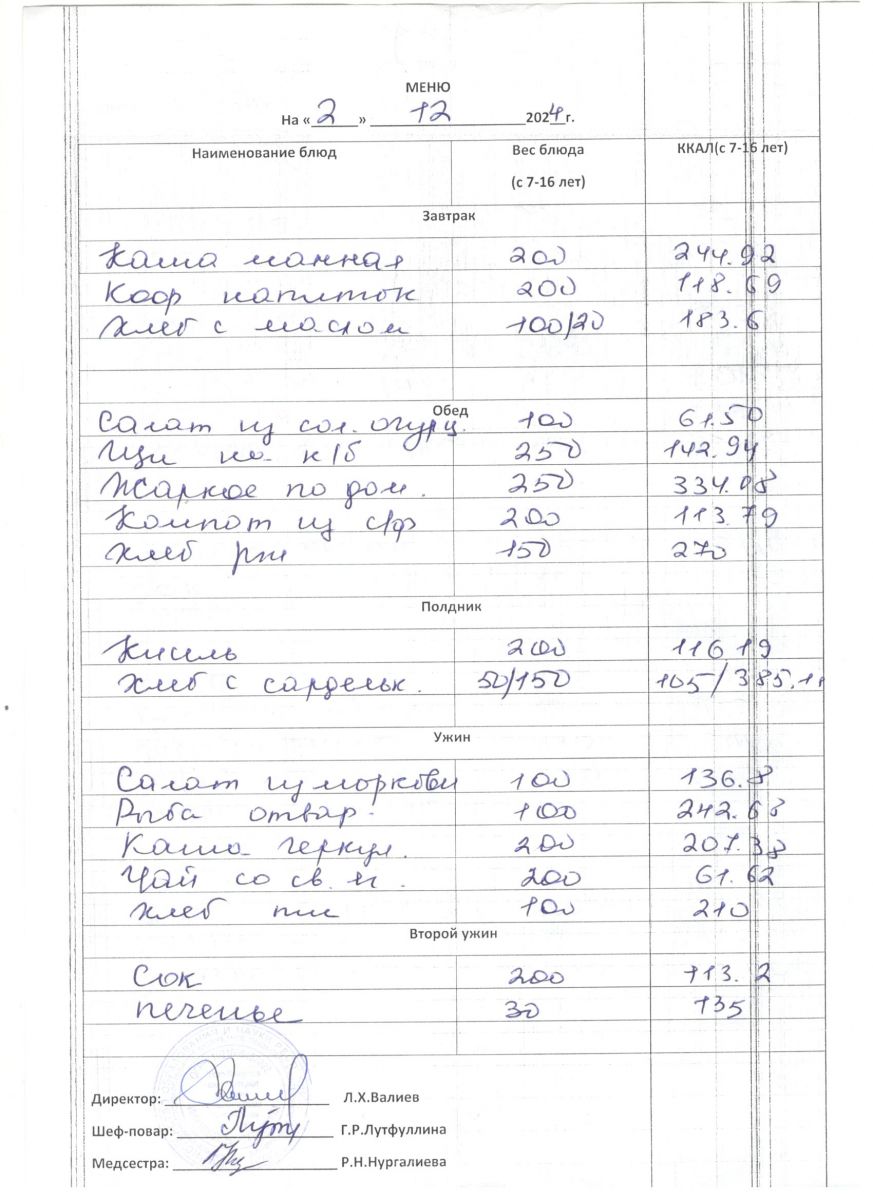 МЕНЮ
На « 2 » 12 2024 г.
Наименование блюд Вес блюда (с 7-16 лет) ККАЛ(с 7-16 лет)
Завтрак
Каша манная 200 244.92
Коф напиток 200 118.69
Хлеб с маслом 100/20 183.6
Обед
Салат из сол. огурц. 100 61.50
Щи на к/б 250 142.94
Жаркое по дом. 250 334.08
Компот из с/ф 200 113.79
Хлеб рж 150 270
Полдник
Кисель 200 116 19
Хлеб с сардельк. 50/150 105/385.11
Ужин
Салат из моркови 100 136.8
Рыба отвар. 100 242.63
Каша геркул. 200 207.38
Чай со св. м. 200 61.62
Хлеб пш 100 210
Второй ужин
Сок 200 113.2
печенье 30 135
Директор: Л.Х.Валиев
Шеф-повар: Г.Р.Лутфуллина
Медсестра: Р.Н.Нургалиева